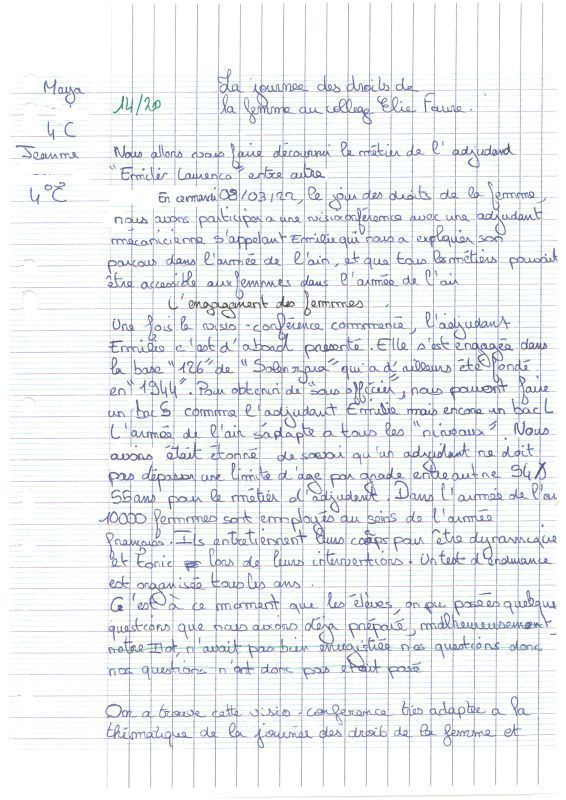 Maya
14/20
La journee des droits de
la femme au colleg Elie Faure.
4C
Jeanne
4°C
Nous allons vous faire découvrir le métier de l'adjudant
"Emilie Laurenco" entre autre.
En ce mardi 08/03/22, le jour des droits de la femme,
nous avons participer a une visioconférence avec une adjudant
mécanicienne s'appelant Emilie qui nous a expliquer son
parcours dans l'armée de l'air, et que tous les métiers pouvait
être accessible aux femmes dans l'armée de l'air
L'engagement des femmes.
Une fois la visio-conférence commencée, l'adjudant
Emilie c'est d'abord presenté. Elle s'est engagée dans
la base "126" de "Solenzara" qui a d'ailleurs été fondé
en "1944". Pour obtenir de "sous officier", nous pouvont faire
un bac S comme l'adjudant Emilie mais encore un bac L
L'armée de l'air s'adapte a tous les "niveaux". Nous
avons était étonné de savoir qu'un adjudant ne doit
pas dépasser une limite d'age par grade entre autre 54
55 ans pour le métier d'adjudent. Dans l'armée de l'air
10000 femmes sont employés du seins de l'armée
français. Ils entretiennent leurs corps pour être dynamique
et tonic lors de leurs interventions. Un test d'endurance
est organisée tous les ans.
C'est à ce moment que les élèves, on pu posées quelque
questions que nous avons déja préparé, malheureusement
notre n'avait pas bien enregistrée nos questions donc
nos questions n'ont donc pas etait posé
On a trouve cette visio-conference très adaptée a la
thématique de la journée des droits de la femme et